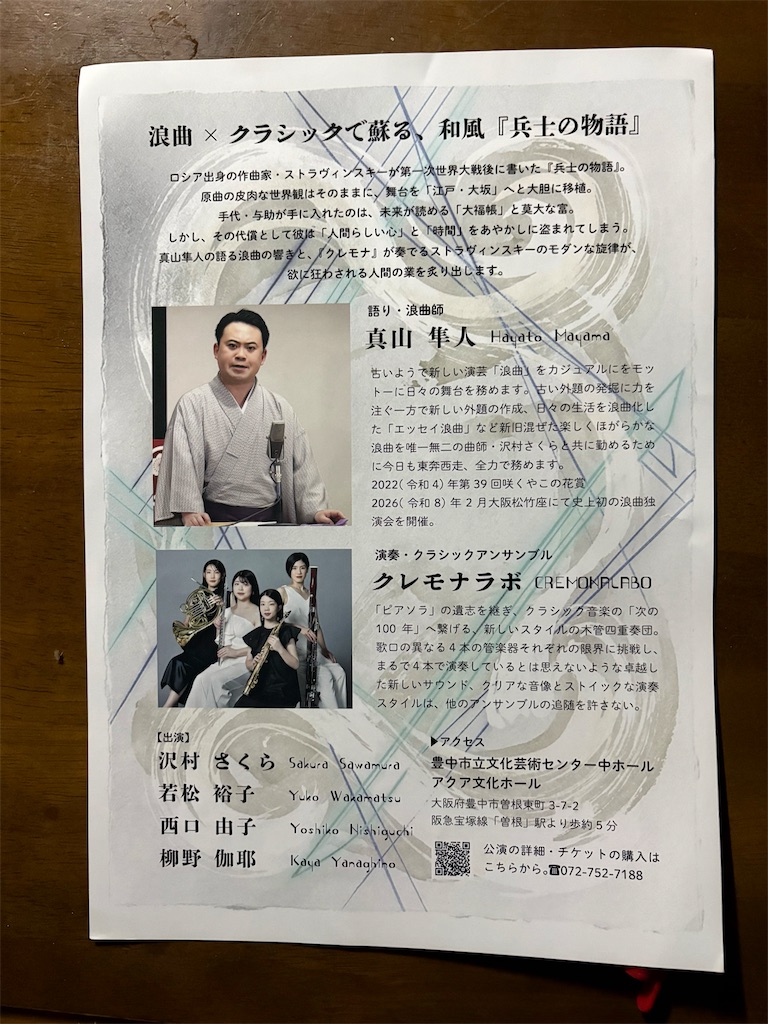 浪曲 × クラシックで蘇る、和風『兵士の物語』
ロシア出身の作曲家・ストラヴィンスキーが第一次世界大戦後に書いた『兵士の物語』。
原曲の皮肉な世界観はそのままに、舞台を「江戸・大坂」へと大胆に移植。
手代・与助が手に入れたのは、未来が読める「大福帳」と莫大な富。
しかし、その代償として彼は「人間らしい心」と「時間」をあやかしに盗まれてしまう。
真山隼人の語る浪曲の響きと、『クレモナ』が奏でるストラヴィンスキーのモダンな旋律が、
欲に狂わされる人間の業を炙り出します。
語り・浪曲師
真山 隼人 Hayato Mayama
古いようで新しい演芸「浪曲」をカジュアルにをモッ
トーに日々の舞台を務めます。古い外題の発掘に力を
注ぐ一方で新しい外題の作成、日々の生活を浪曲化し
た「エッセイ浪曲」など新旧混ぜた楽しくほがらかな
浪曲を唯一無二の曲師・沢村さくらと共に勤めるため
に今日も東奔西走、全力で務めます。
2022(令和4)年第39回咲くやこの花賞
2026(令和8)年2月大阪松竹座にて史上初の浪曲独
演会を開催。
演奏・クラシックアンサンブル
クレモナラボ CREMONALABO
「ピアソラ」の遺志を継ぎ、クラシック音楽の「次の
100年」へ繋げる、新しいスタイルの木管四重奏団。
歌口の異なる4本の管楽器それぞれの限界に挑戦し、
まるで4本で演奏しているとは思えないような卓越し
た新しいサウンド、クリアな音像とストイックな演奏
スタイルは、他のアンサンブルの追随を許さない。
【出演】
沢村 さくら Sakura Sawamura
若松 裕子 Yuko Wakamatsu
西口 由子 Yoshiko Nishiguchi
柳野 伽耶 Kaya Yanaghino
▶アクセス
豊中市立文化芸術センター中ホール
アクア文化ホール
大阪府豊中市曽根東町 3-7-2
阪急宝塚線「曽根」駅より歩約5分
公演の詳細・チケットの購入は
こちらから。☎072-752-7188